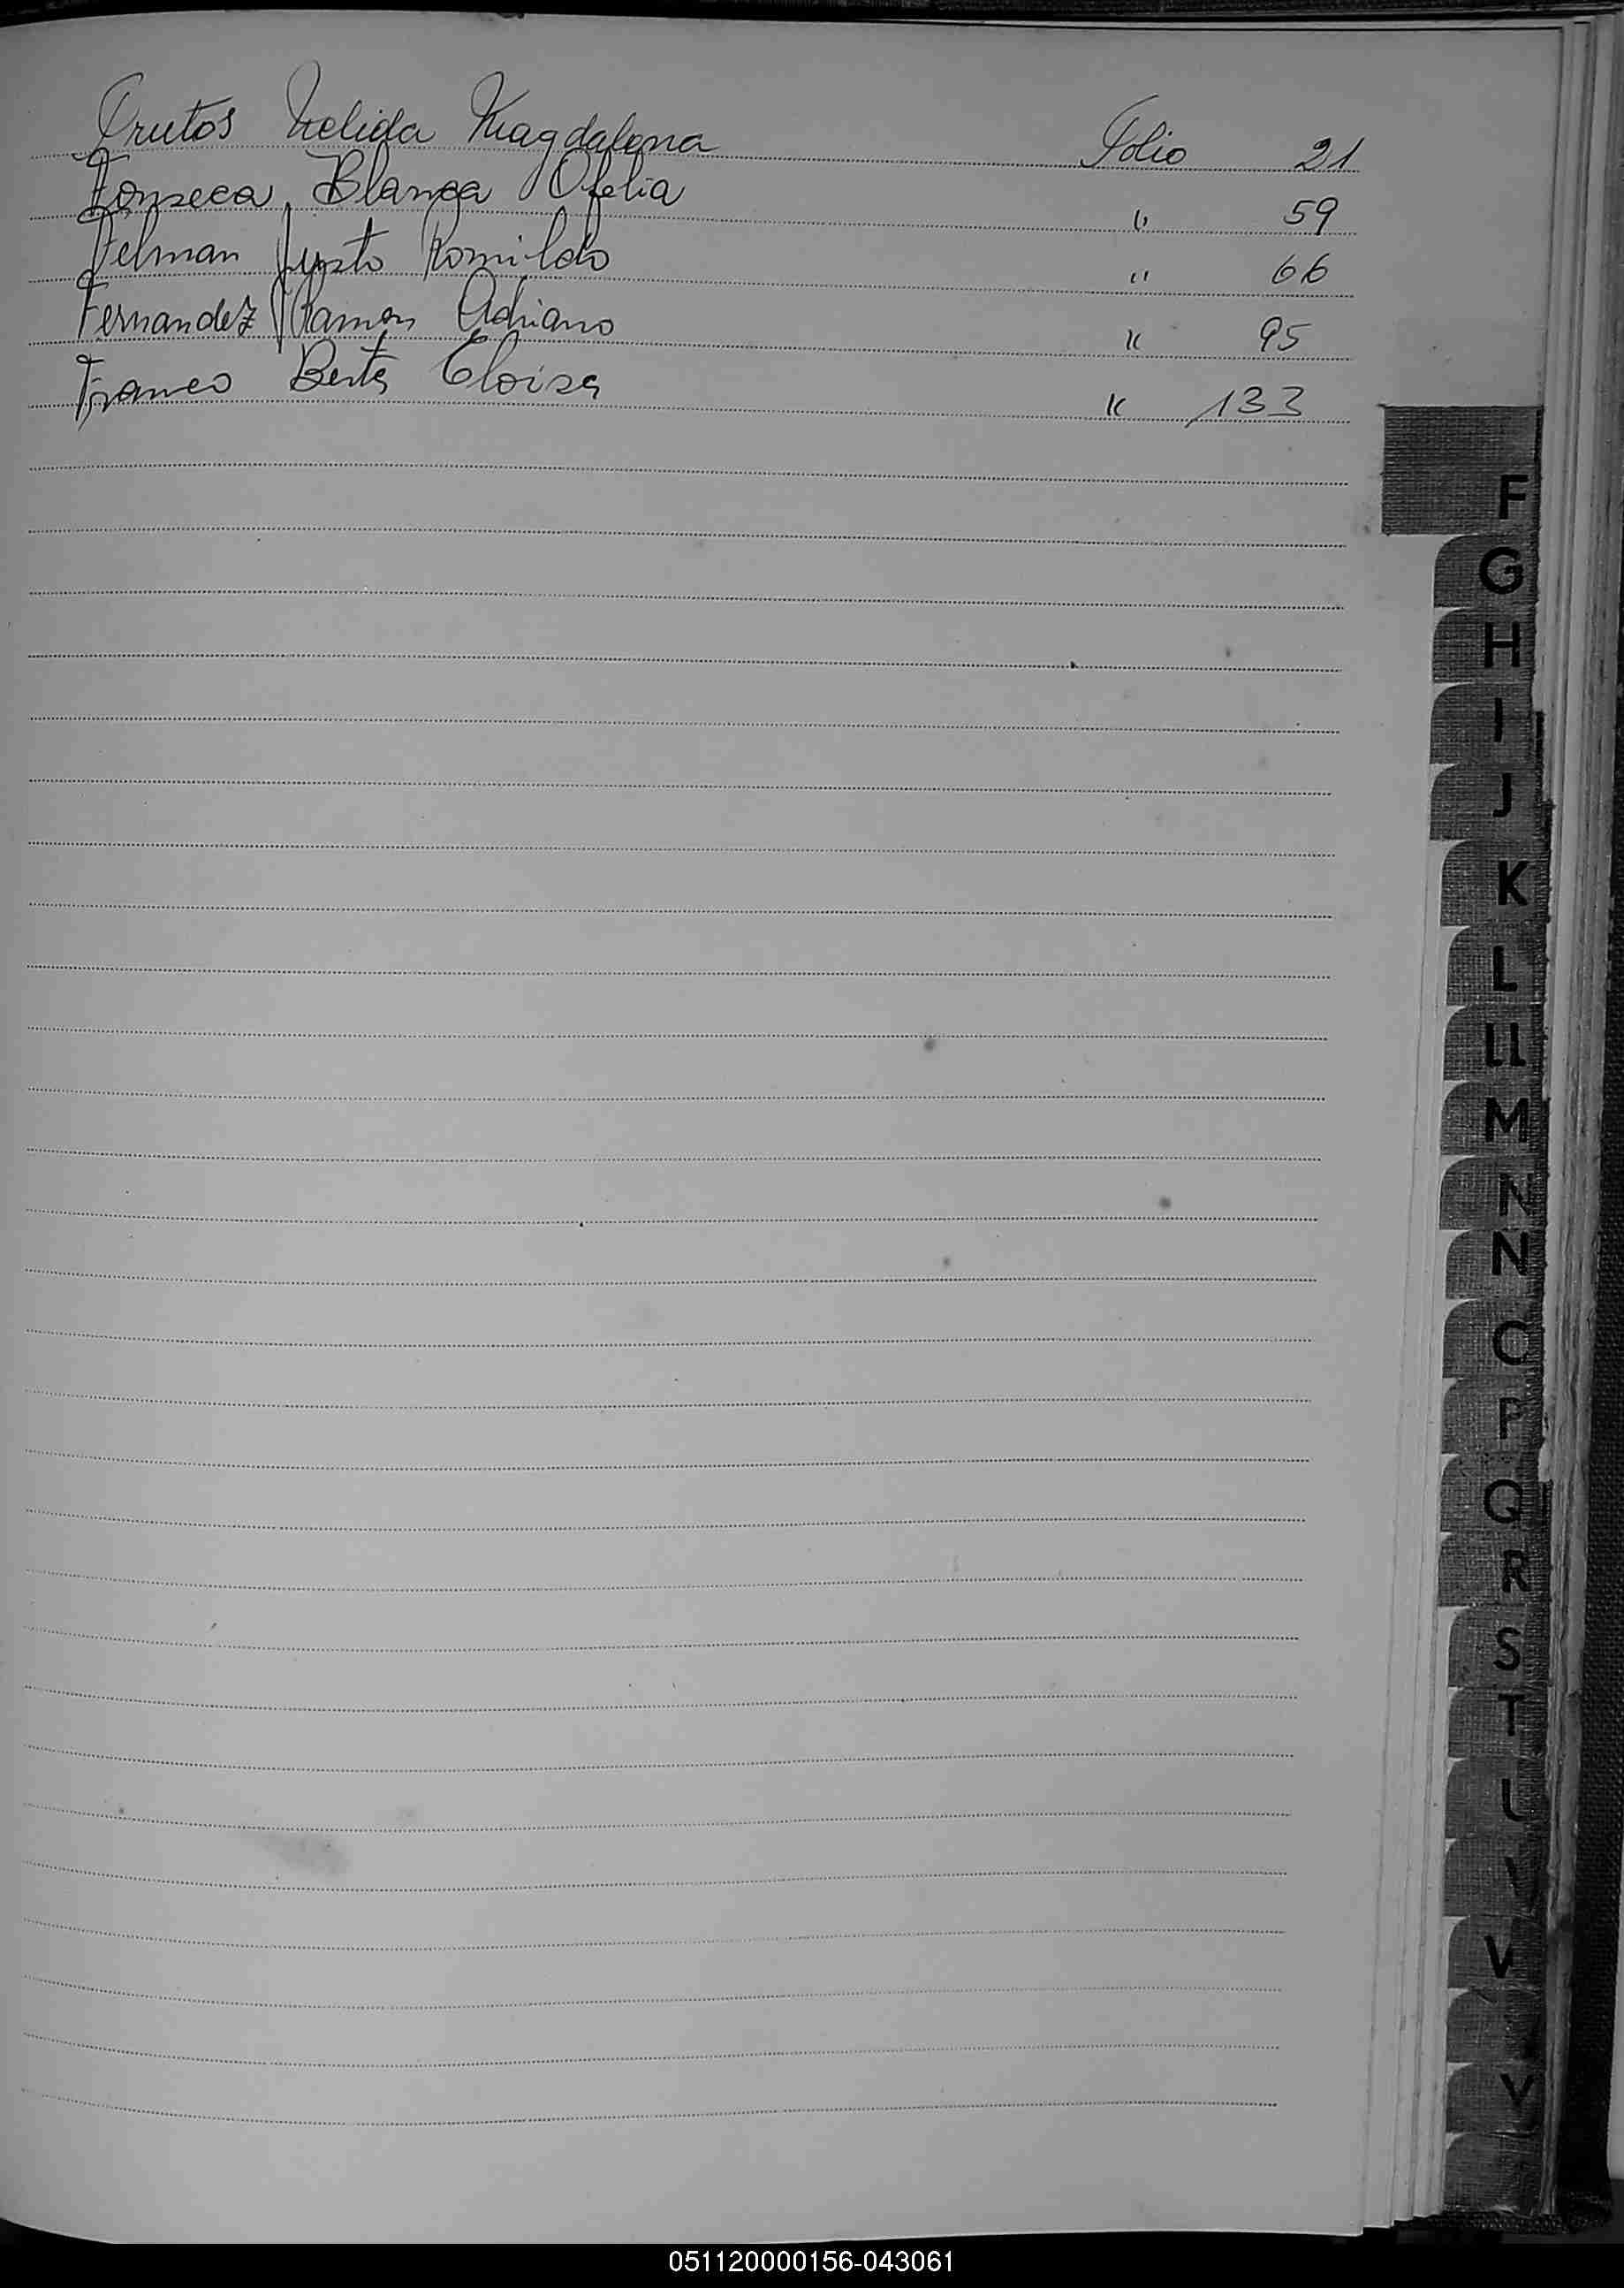 Frutos Nelida Magdalena Folio 21
Fonseca, Blanca Ofelia " 59
Felman Justo Romildo " 66
Fernandez Ramon Adriano " 95
Franco Berta Eloisa " 133
F
G
H
I
J
K
L
Ll
M
N
N
O
P
Q
R
S
T
U
V
V
051120000156-043061